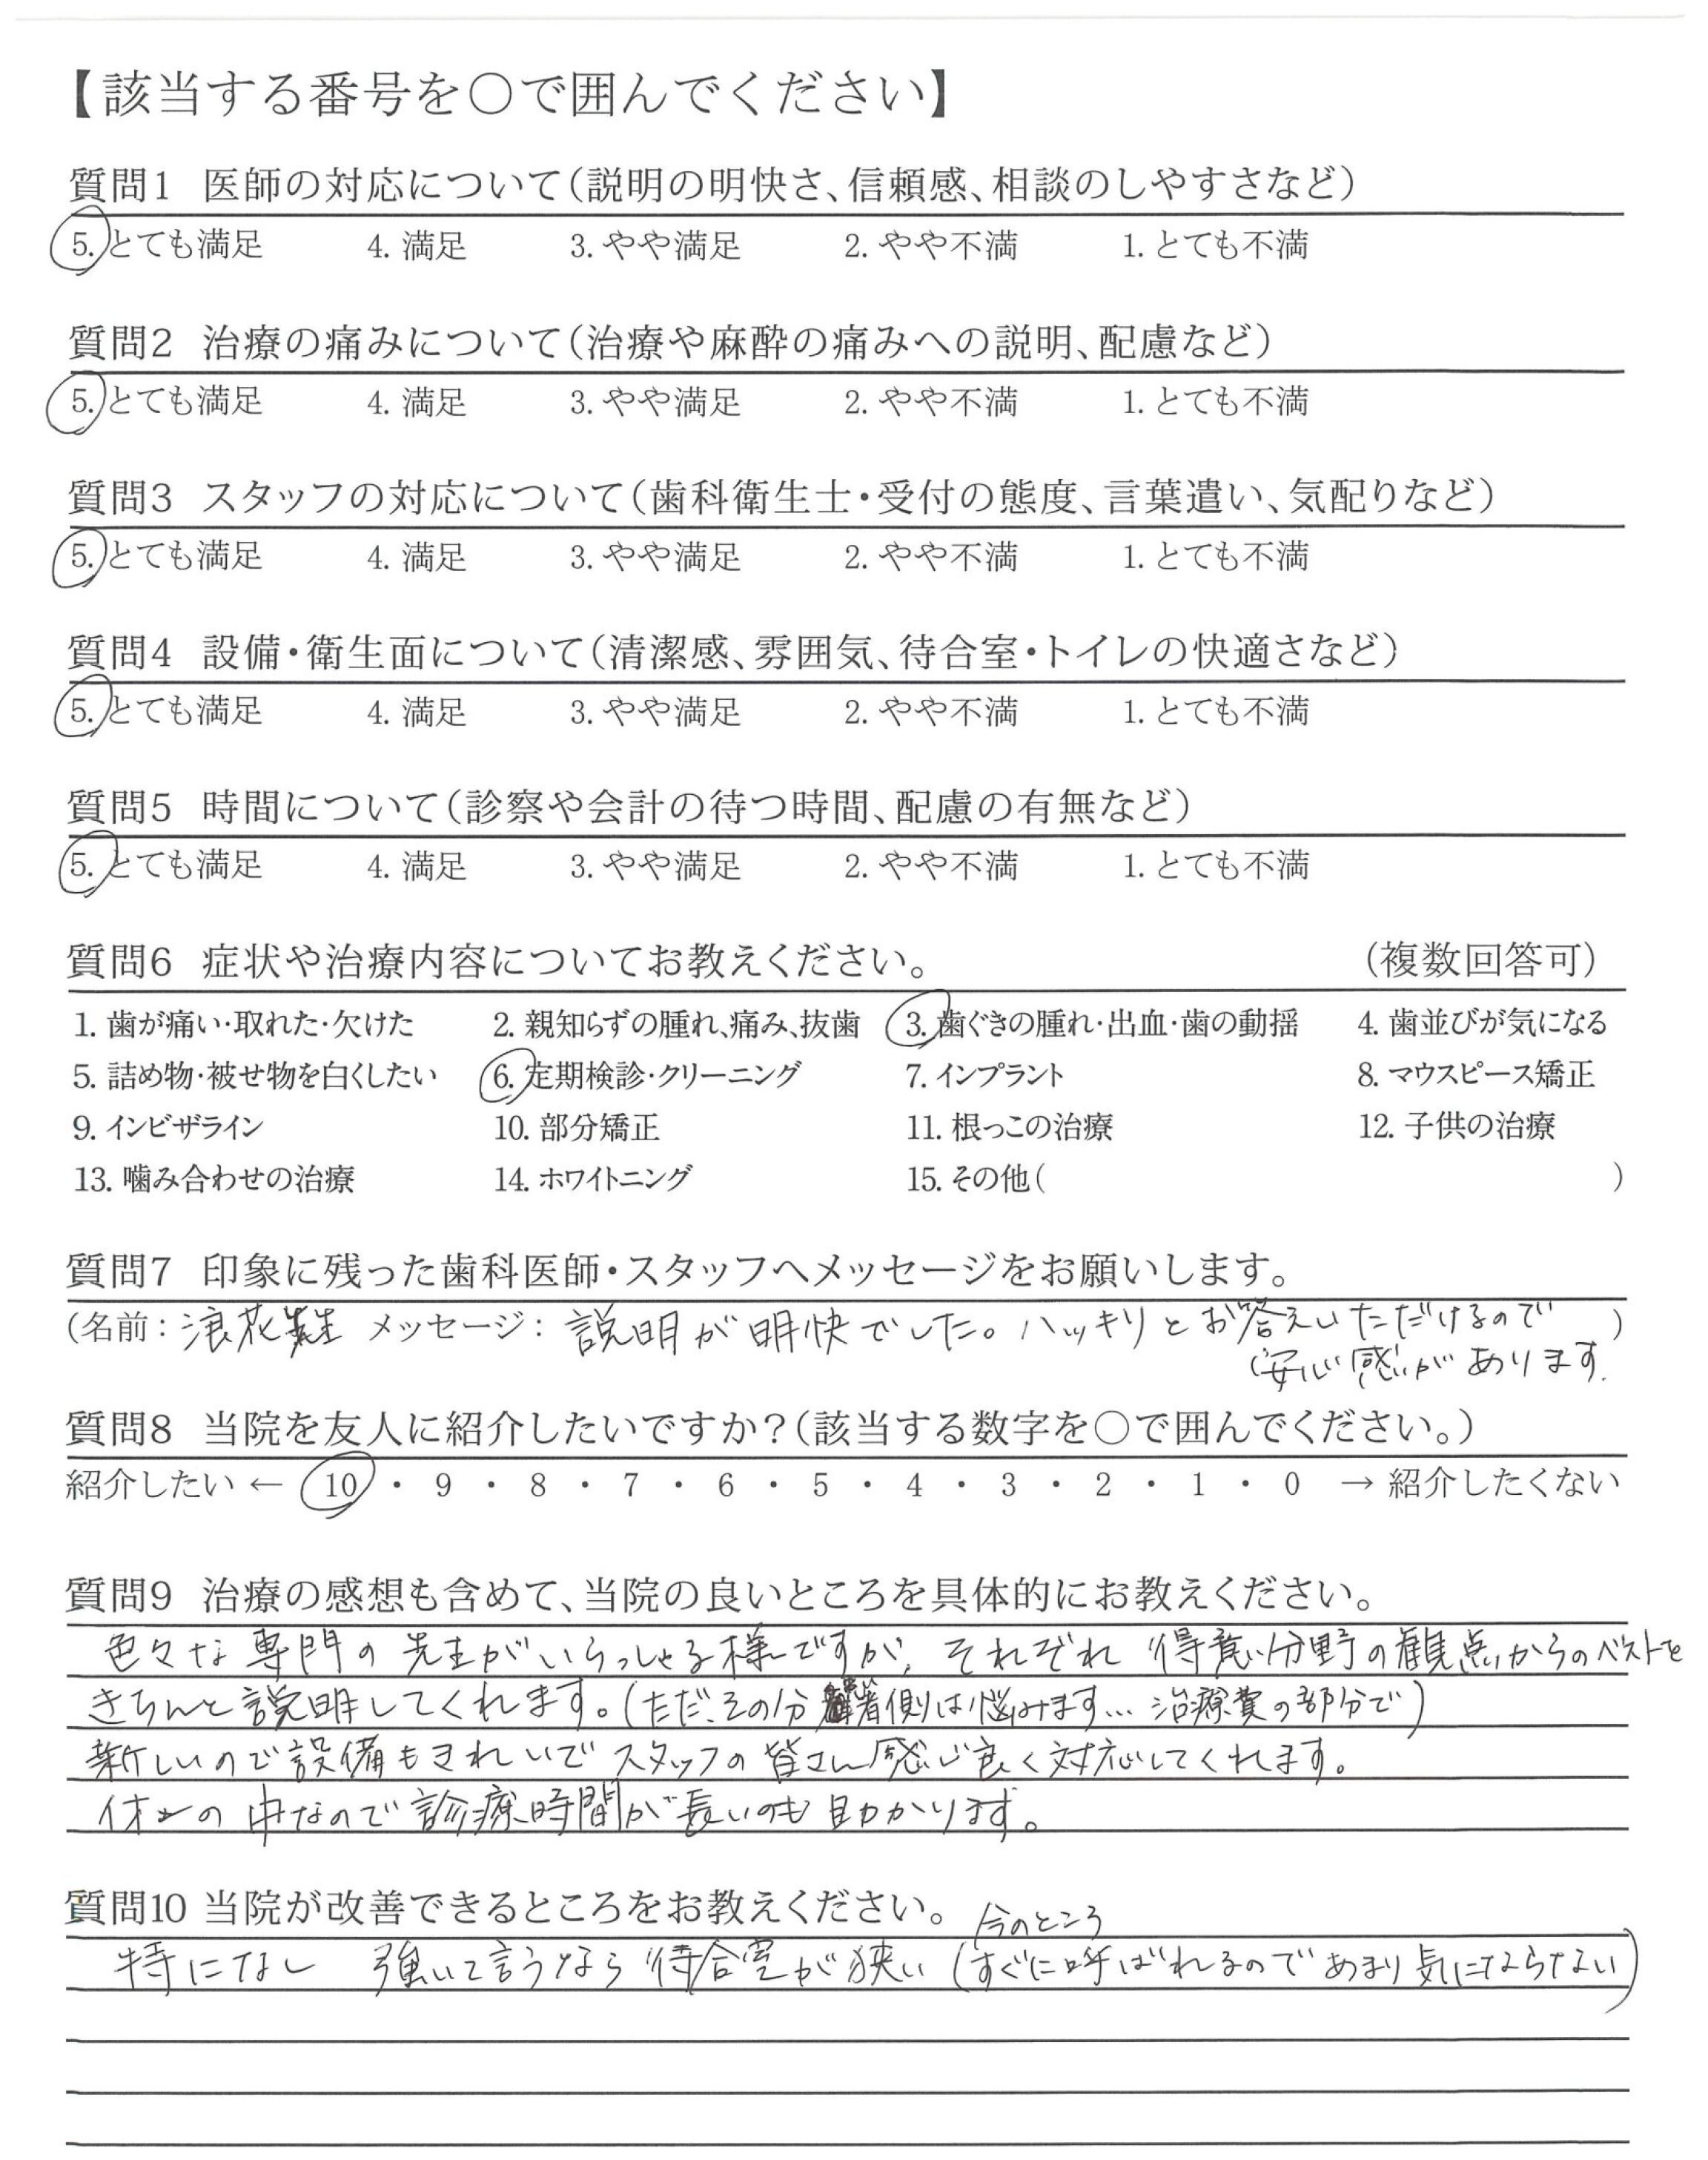 【該当する番号を○で囲んでください】
質問1 医師の対応について(説明の明快さ、信頼感、相談のしやすさなど)
5. とても満足 4. 満足 3. やや満足 2. やや不満 1. とても不満
質問2 治療の痛みについて(治療や麻酔の痛みへの説明、配慮など)
5. とても満足 4. 満足 3. やや満足 2. やや不満 1. とても不満
質問3 スタッフの対応について(歯科衛生士・受付の態度、言葉遣い、気配りなど)
5. とても満足 4. 満足 3. やや満足 2. やや不満 1. とても不満
質問4 設備・衛生面について(清潔感、雰囲気、待合室・トイレの快適さなど)
5. とても満足 4. 満足 3. やや満足 2. やや不満 1. とても不満
質問5 時間について(診察や会計の待つ時間、配慮の有無など)
5. とても満足 4. 満足 3. やや満足 2. やや不満 1. とても不満
質問6 症状や治療内容についてお教えください。 (複数回答可)
1. 歯が痛い・取れた・欠けた 2. 親知らずの腫れ、痛み、抜歯 3. 歯ぐきの腫れ・出血・歯の動揺 4. 歯並びが気になる
5. 詰め物・被せ物を白くしたい 6. 定期検診・クリーニング 7. インプラント 8. マウスピース矯正
9. インビザライン 10. 部分矯正 11. 根っこの治療 12. 子供の治療
13. 噛み合わせの治療 14. ホワイトニング 15. その他( )
質問7 印象に残った歯科医師・スタッフへメッセージをお願いします。
(名前: 浪花先生 メッセージ: 説明が明快でした。ハッキリとお答えいただけるので )
安心感があります.
質問8 当院を友人に紹介したいですか?(該当する数字を○で囲んでください。)
紹介したい ← 10 ・ 9 ・ 8 ・ 7 ・ 6 ・ 5 ・ 4 ・ 3 ・ 2 ・ 1 ・ 0 → 紹介したくない
質問9 治療の感想も含めて、当院の良いところを具体的にお教えください。
色々な専門の先生がいらっしゃる様ですが、それぞれ得意分野の観点からのベストを
きちんと説明してくれます。(ただ、その分患者側は悩みます… 治療費の部分で)
新しいので設備もきれいでスタッフの皆さん感じ良く対応してくれます。
の中なので診療時間が長いのも助かります。
質問10 当院が改善できるところをお教えください。
今のところ
特になし 強いて言うなら待合室が狭い (すぐに呼ばれるのであまり気にならない)